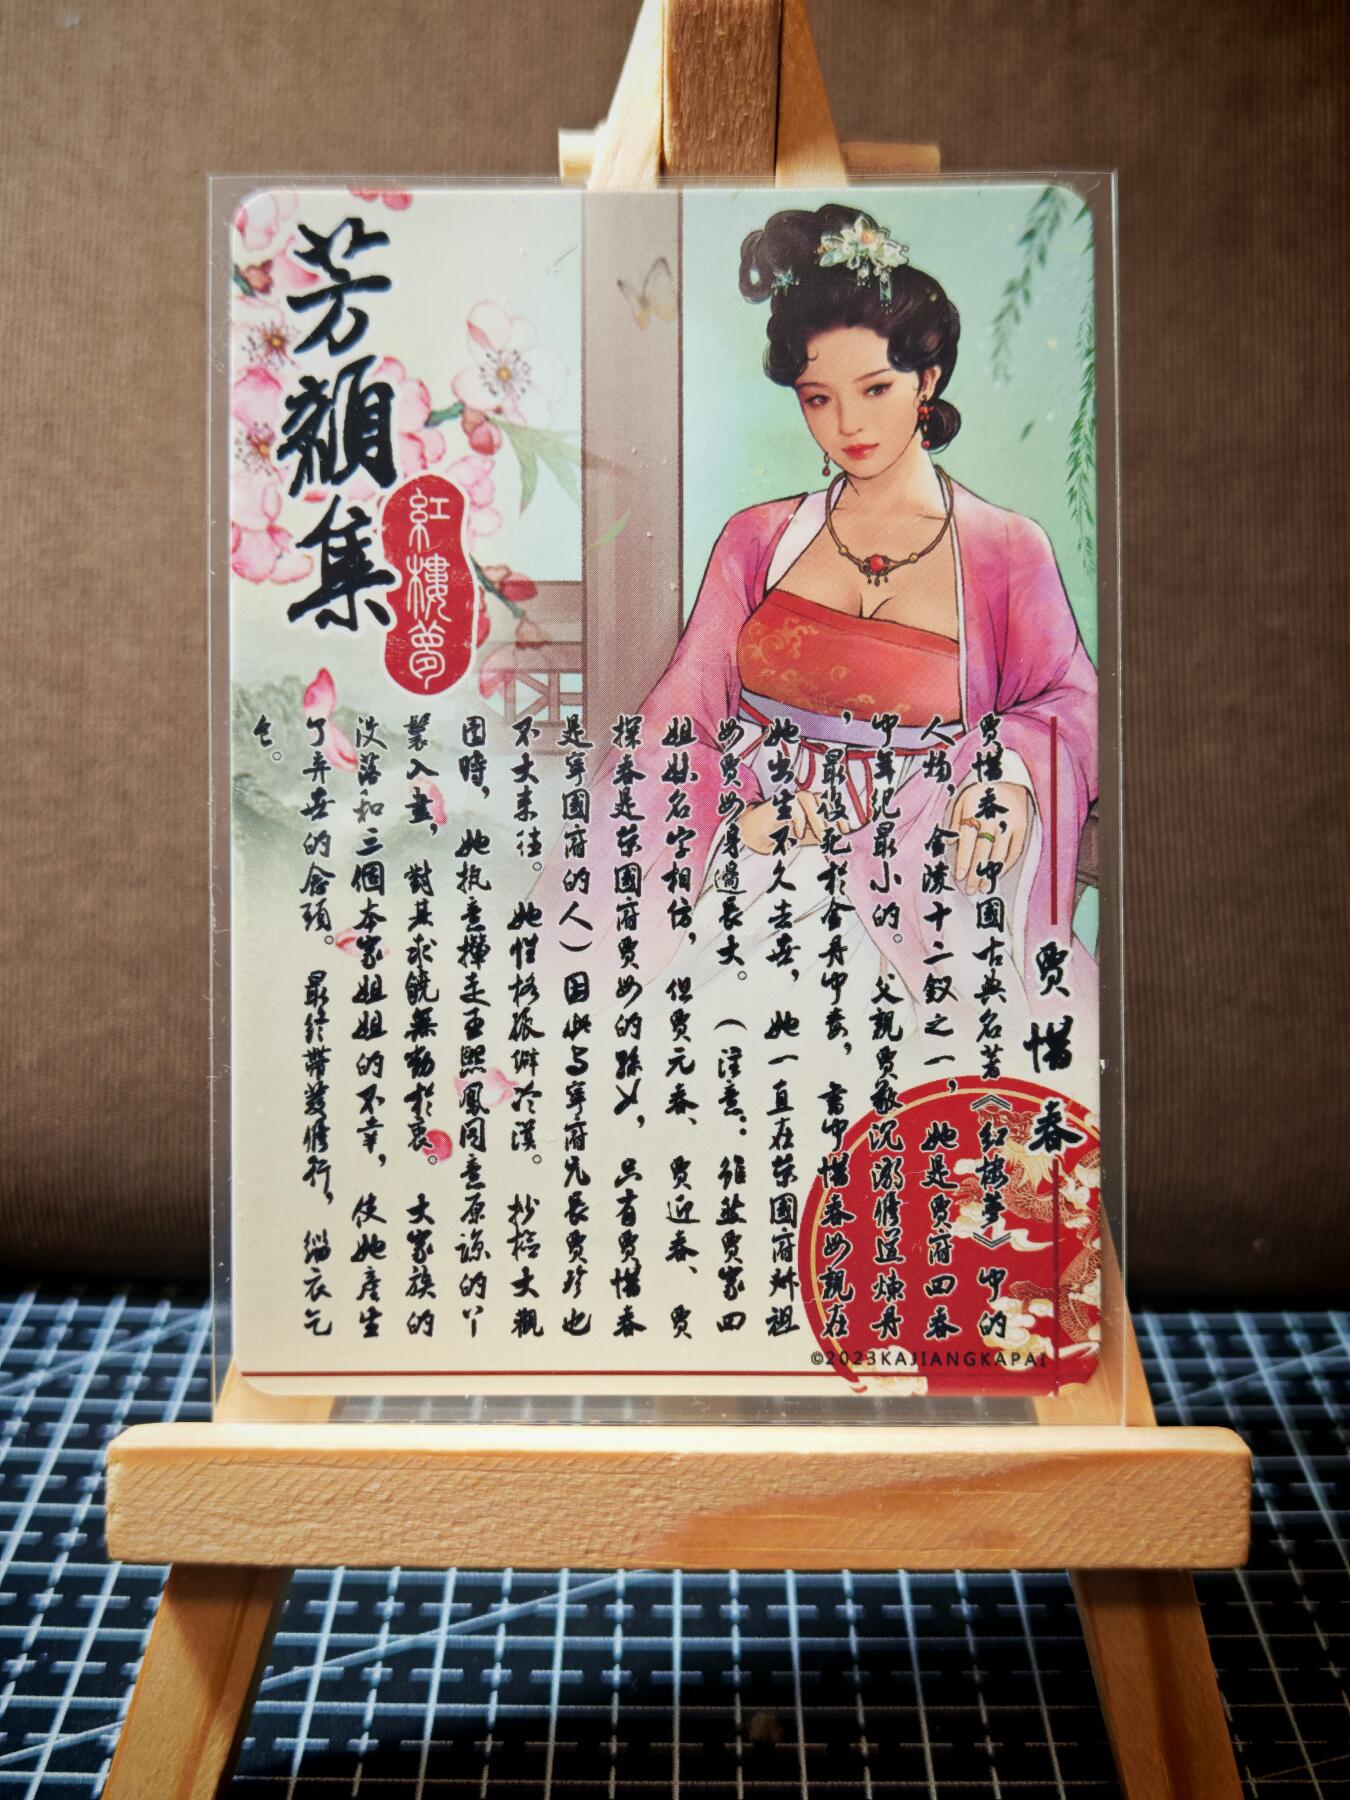 芳顏集
紅樓夢
賈惜春
賈惜春，中國古典名著《紅樓夢》中的
人物，金陵十二釵之一，她是賈府四春
中年紀最小的。父親賈敬沉溺修道煉丹
，最後死於金丹中毒，書中惜春母親在
她出生不久去世，她一直在榮國府叔祖
母賈母身邊長大。（注意：雖然賈家四
姐妹名字相仿，但賈元春、賈迎春、賈
探春是榮國府賈母的孫女，只有賈惜春
是寧國府的人）因此與寧府兄長賈珍也
不大來往。她性格孤僻冷漠。抄檢大觀
園時，她执意攆走王熙鳳同意原諒的丫
鬟入畫，對其求饒無動於衷。大家族的
沒落和三個本家姐姐的不幸，使她產生
了弃世的念頭。最終帶发修行，緇衣乞
乞。
©2023KAJIANGKAPAI